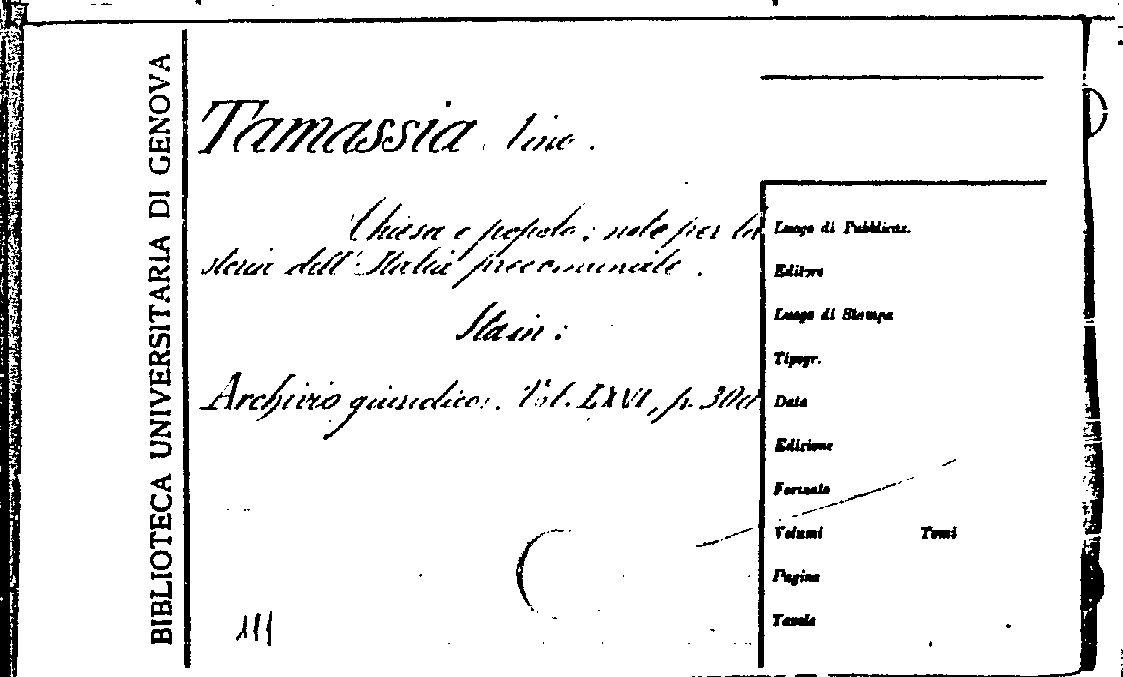 BIBLIOTECA UNIVERSITARIA DI GENOVA
Tamassia Nino.
Chiesa e popolo: note per la
storia dell'Italia precomunale.
Sta in:
Archivio giuridico. Vol. LXVI, p. 300
Luogo di Pubblicaz.
Editore
Luogo di Stampa
Tipogr.
Data
Edizione
Formato
Volumi Tomi
Pagine
Tavole